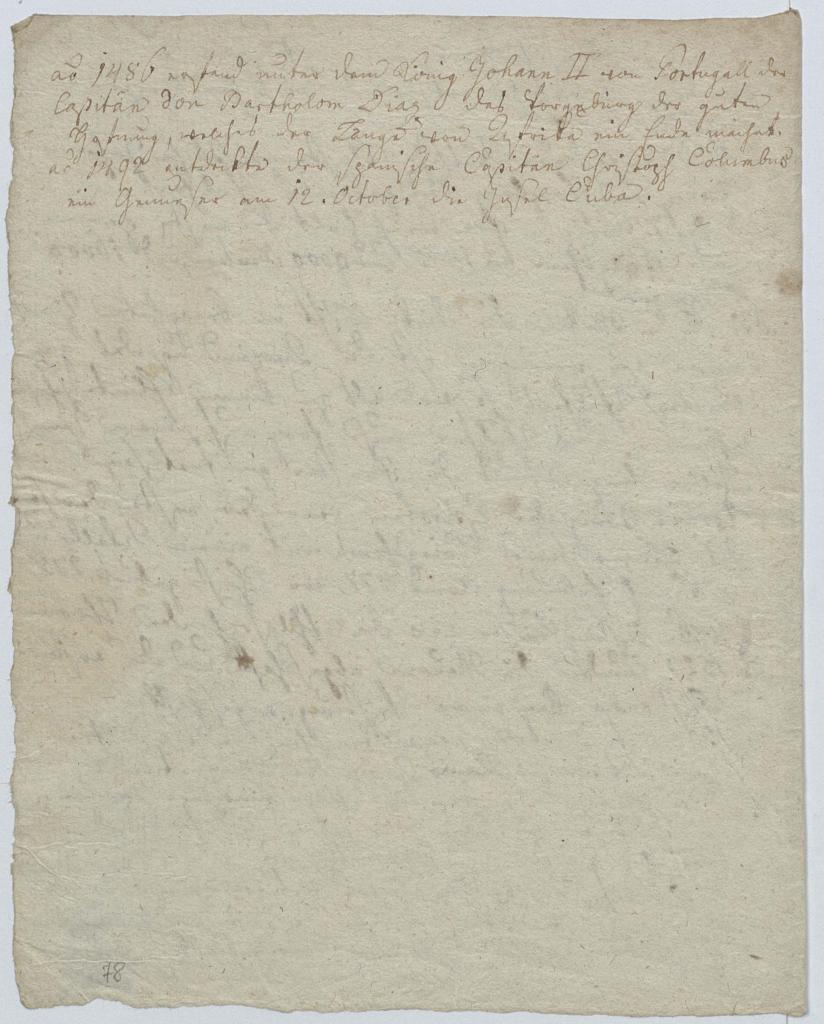 ao 1486 erfand unter dem König Johann II von Portugall der
Capitän don Bartholom Diaz das Vorgebürg der guten
Hofnung, welches der Länge von Afrika ein Ende machet.
ao 1492 entdeckte der spanische Capitän Christoph Columbus
ein Genueser am 12. October die Insel Cuba.
78